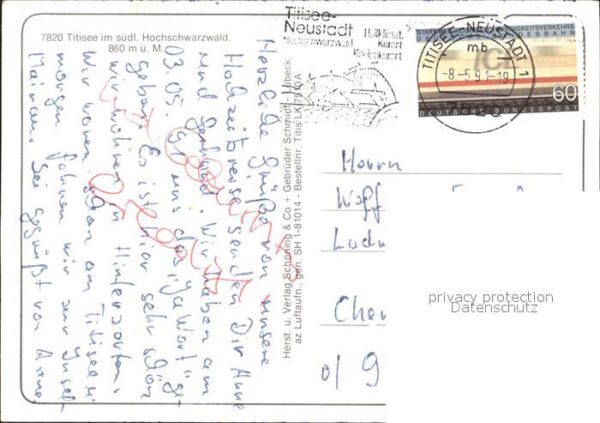 7820 Titisee im südl. Hochschwarzwald.
860 m ü. M.
Herzliche Grüße von unserer
Hochzeitsreise senden Dir Anne
und Gerhard. Wir haben am
03.05. uns das Jawort ge-
geben. Es ist hier sehr schön
wir wohnen in Hinterzarten.
Wir waren schon am Titisee u.
morgen fahren wir zur Insel
Mainau. Sei gegrüßt von Anne
Herst. u. Verlag Schöning & Co + Gebrüder Schmidt, Lübeck
az Luftaufn., gen. SH 1-81014 - Bestellnr. Titis Lu 7510 A
Titisee-
Neustadt
Hochschwarzwald
Heilklimat.
Kurort
Kneippkurort
TITISEE-NEUSTADT 1
mb
-8.-5.91-19
IC
60
DEUTSCHE BUNDESPOST
Herrn
Wolf
Che
0/ 9
privacy protection
Datenschutz